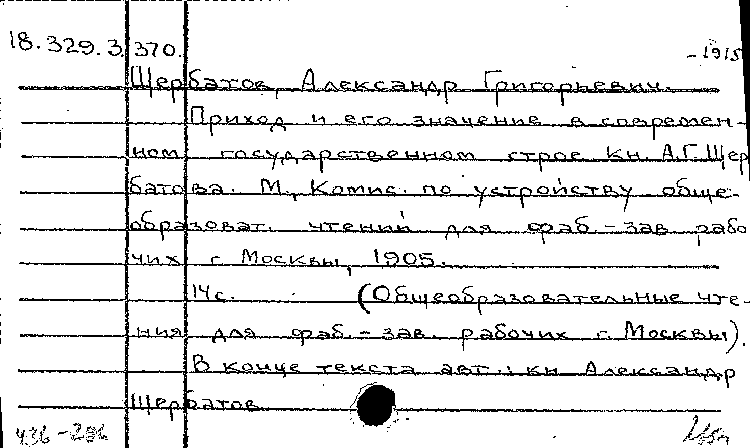 18.329.3.370.
-1915
Щербатов, Александр Григорьевич.
Приход и его значение в современ-
ном государственном строе Кн. А.Г. Щер
батова. М., Комис. по устройству обще-
образоват. чтений для фаб.-зав. рабо
чих г. Москвы, 1905.
14с. (Общеобразовательные чте-
ния для фаб.-зав. рабочих г. Москвы).
В конце текста авт.: кн. Александр
Щербатов
436-286